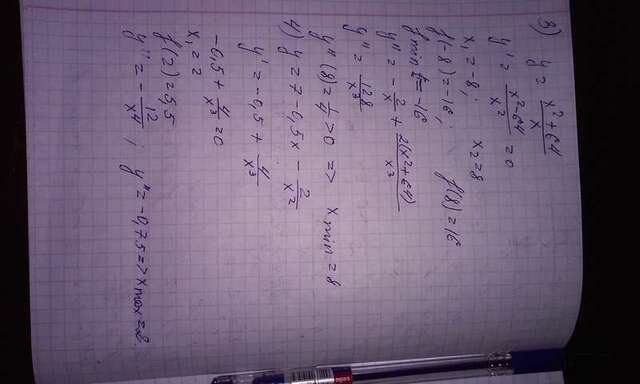 3) y = (x²+64)/x
y' = (x²-64)/x² = 0
x₁ = -8; x₂ = 8
f(-8) = -16; f(8) = 16
fmin = -16
y'' = -2/x + 2(x²+64)/x³
y'' = 128/x³
y''(8) = 1/4 > 0 => xmin = 8
4) y = 7 - 0,5x - 2/x²
y' = -0,5 + 4/x³
-0,5 + 4/x³ = 0
x₁ = 2
f(2) = 5,5
y'' = -12/x⁴; y'' = -0,75 => xmax = 2.